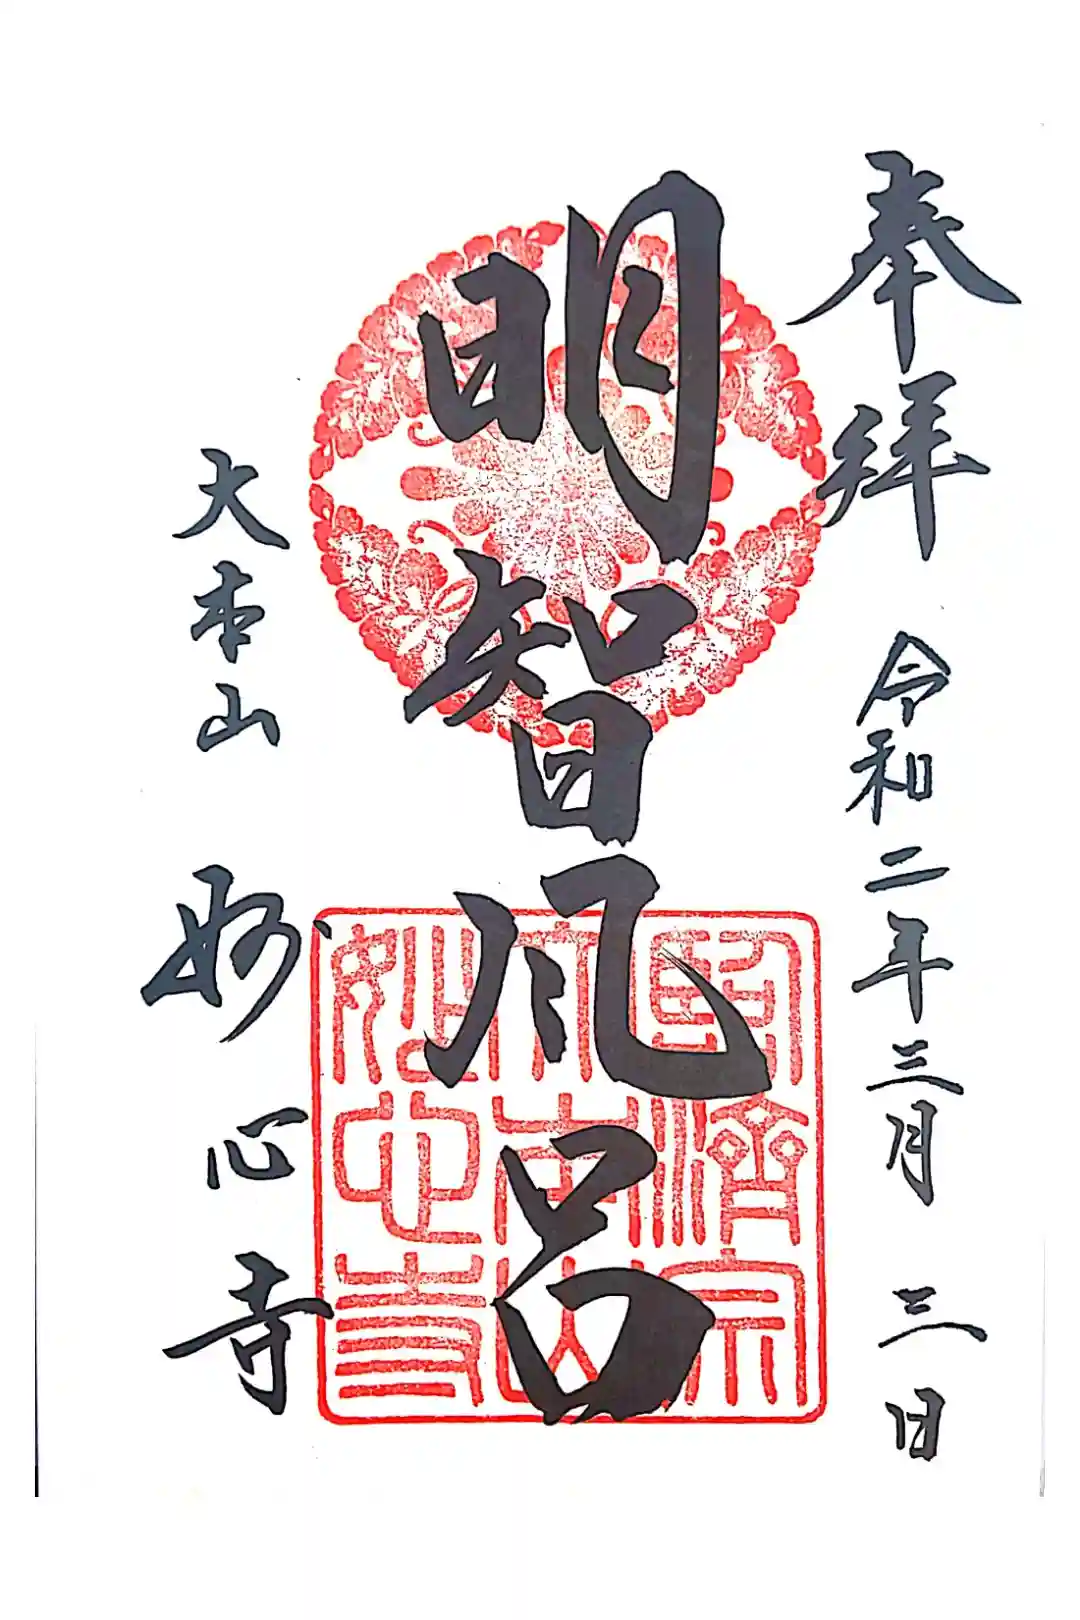 奉拝 令和二年三月 三日
明智風呂
大本山 妙心寺
臨濟宗
大本山
妙心寺